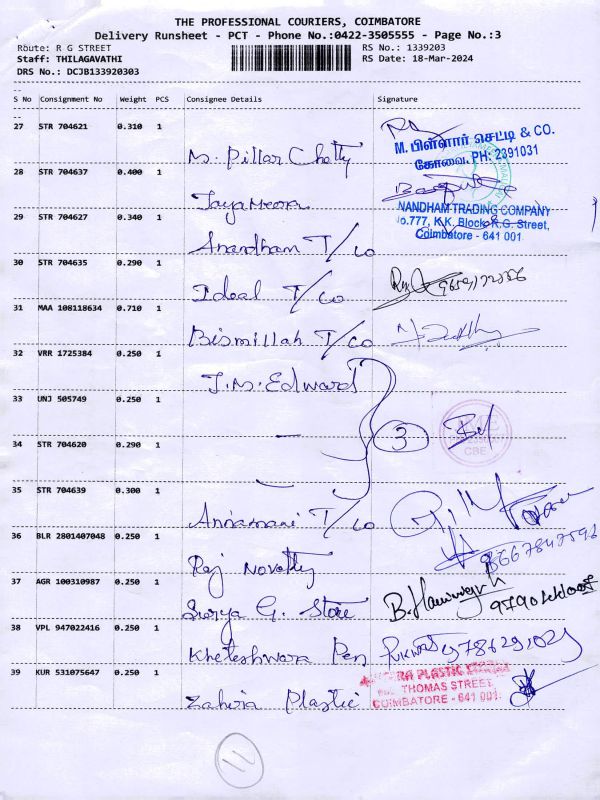 THE PROFESSIONAL COURIERS, COIMBATORE
Delivery Runsheet - PCT - Phone No.:0422-3505555 - Page No.:3
Route: R G STREET
RS No.: 1339203
Staff: THILAGAVATHI
RS Date: 18-Mar-2024
DRS No.: DCJB133920303
S No Consignment No Weight PCS Consignee Details Signature
27 STR 704621 0.310 1
M. Pillar Chetty
M. பிள்ளார் செட்டி & CO.
கோவை. PH: 2391031
28 STR 704637 0.400 1
Jaya Meera
29 STR 704627 0.340 1
Anandham T/co
NANDHAM TRADING COMPANY
No.777, K.K. Block, R.G. Street,
Coimbatore - 641 001.
30 STR 704635 0.290 1
Ideal T/co
31 MAA 108118634 0.710 1
Bismillah T/co
32 VRR 1725384 0.250 1
J.M. Edward
33 UNJ 505749 0.250 1
3
CBE
34 STR 704620 0.290 1
35 STR 704639 0.300 1
Annamani T/co
36 BLR 2801407048 0.250 1
Raj Novolty
37 AGR 100310987 0.250 1
Surya G. Store
38 VPL 947022416 0.250 1
Kheteshwara Pen
39 KUR 531075647 0.250 1
Zahira Plastic
PLASTIC
THOMAS STREET,
COIMBATORE - 641 001.
11